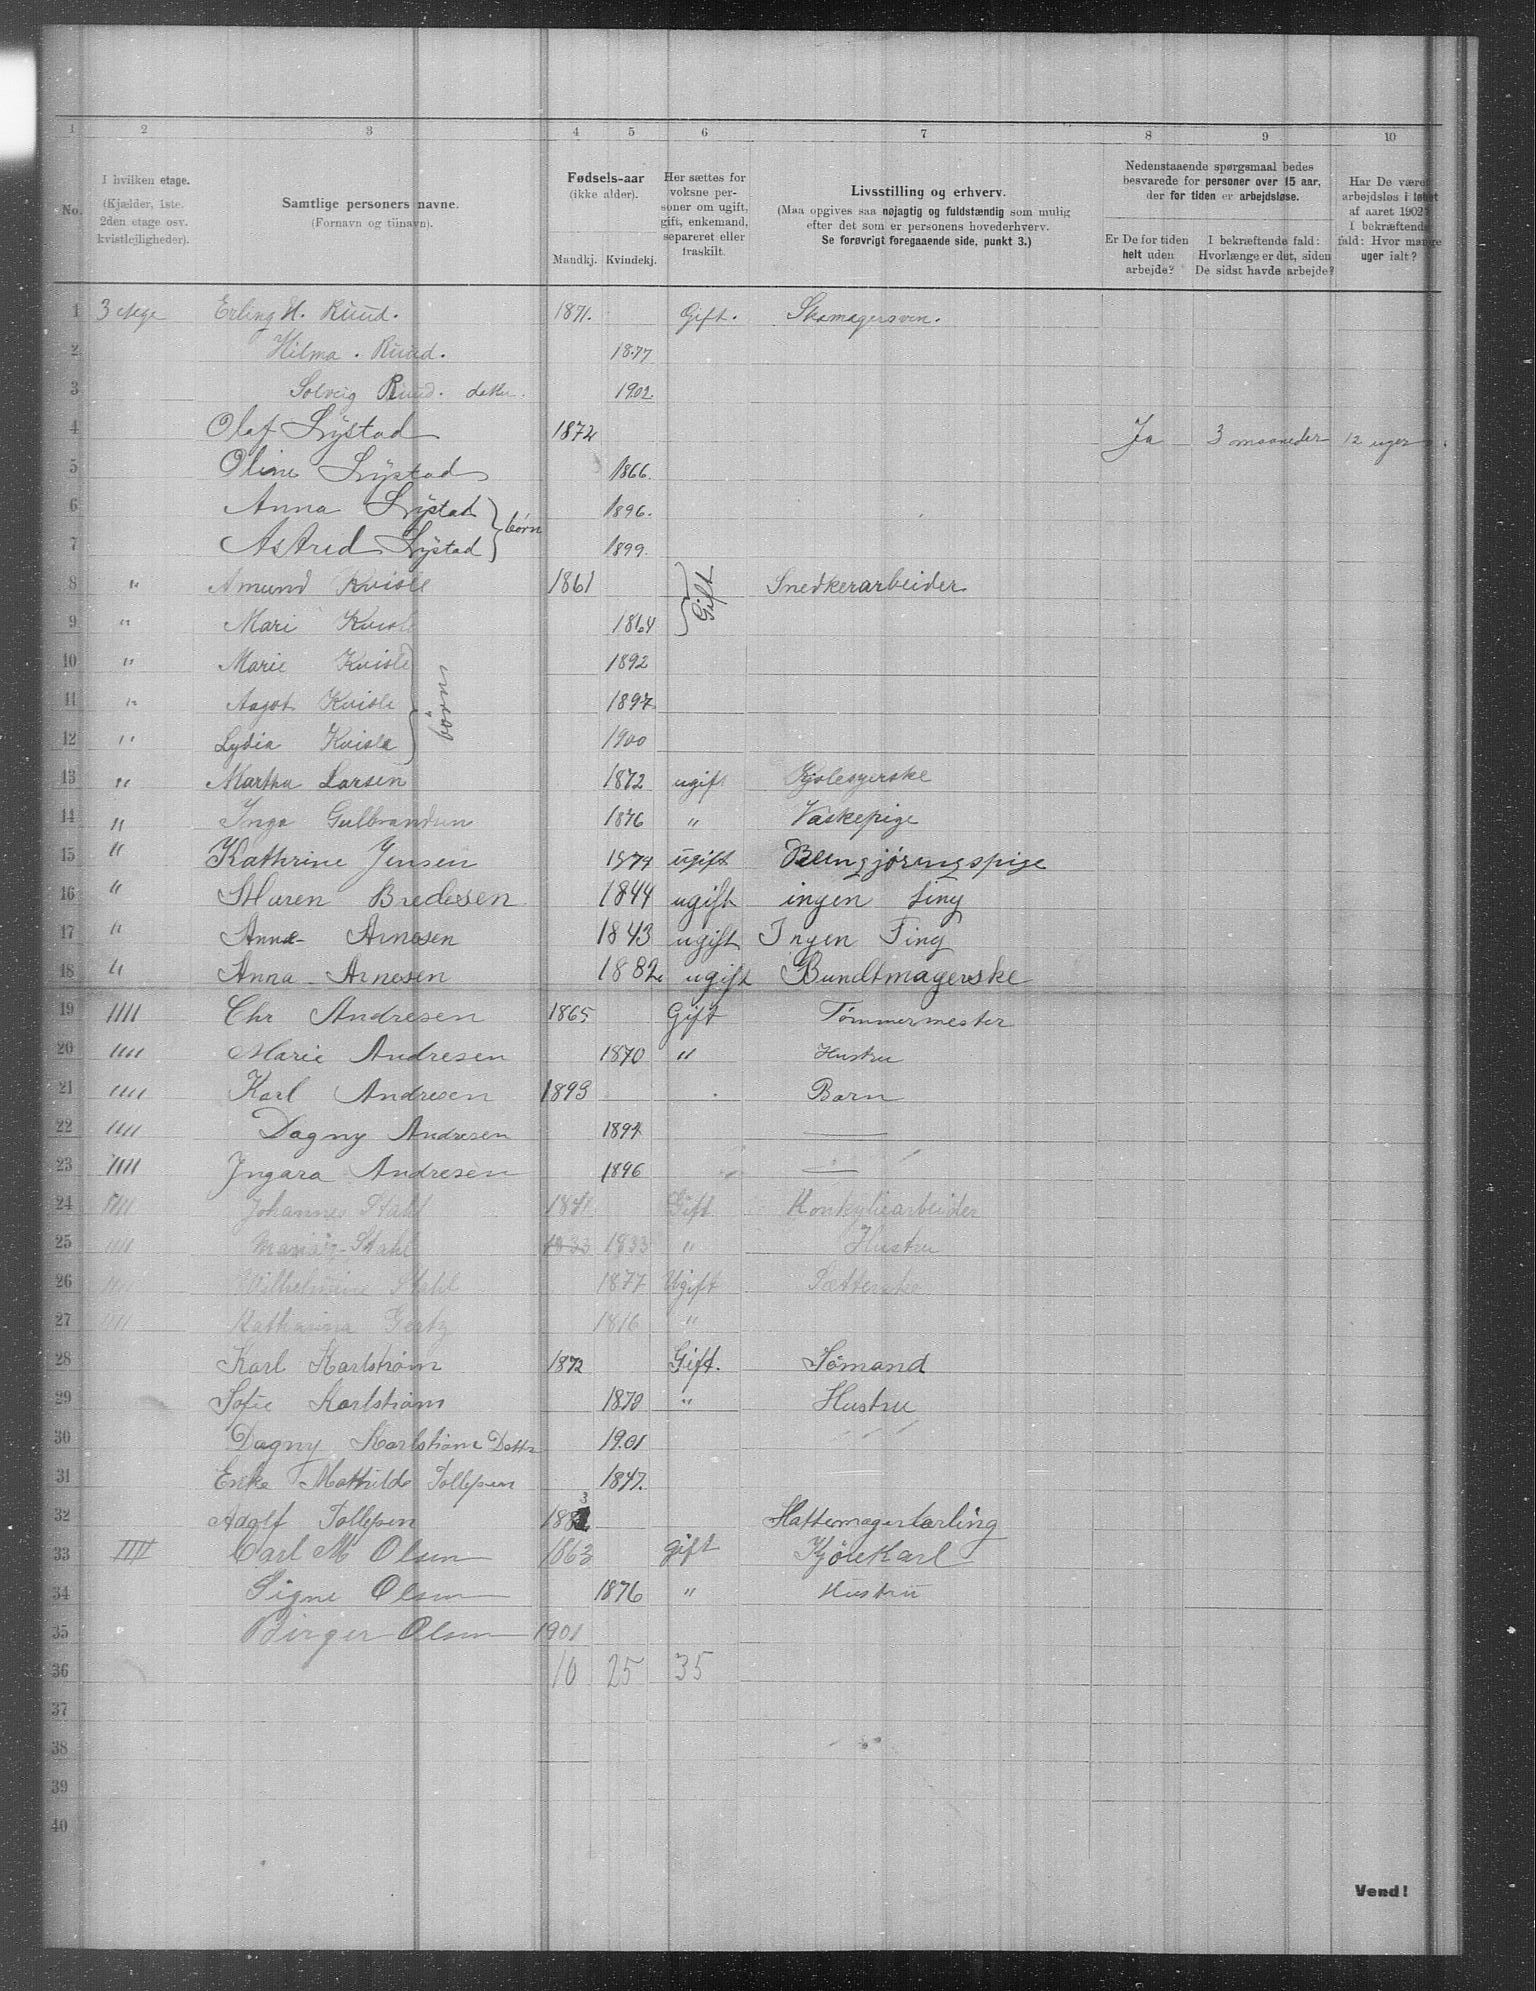 1 2 3 4 5 6 7 8 9 10
No.
I hvilken etage.
(Kjælder, 1ste.
2den etage osv.
kvistlejligheder).
Samtlige personers navne.
(Fornavn og tilnavn).
Fødsels-aar
(ikke alder).
Mandkj. Kvindekj.
Her sættes for
voksne per-
soner om ugift,
gift, enkemand,
separeret eller
fraskilt.
Livsstilling og erhverv.
(Maa opgives saa nøjagtig og fuldstændig som mulig
efter det som er personens hovederhverv.
Se forøvrigt foregaaende side, punkt 3.)
Nedenstaaende spørgsmaal bedes
besvarede for personer over 15 aar,
der for tiden er arbejdsløse.
Er De for tiden
helt uden
arbejde?
I bekræftende fald:
Hvorlænge er det, siden
De sidst havde arbejde?
Har De været
arbejdsløs i løbet
af aaret 1902?
I bekræftende
fald: Hvor mange
uger ialt?
1 3 etage Erling H. Ruud. 1871. Gift. Skomagersven.
2 Hilma. Ruud. 1877
3 Solveig Ruud. 1902
4 Olaf Lystad 1872 Ja 3 maaneder 12 uger
5 Oline Lystad 1866.
6 Anna Lystad 1896.
børn
7 Astrid Lystad 1899.
8 " Amund Kvisle 1861 Gift Snedkerarbeider
9 " Mari Kvisle 1864
10 " Marie Kvisle 1892
børn
11 " Aagot Kvisle 1897
12 " Lydia Kvisle 1900
13 " Martha Larsen 1872 ugift Kjolesyerske
14 " Inga Gulbrandsen 1876 " Vaskepige
15 " Kathrine Jensen 1874 ugift Rengjøringspige
16 " Maren Bredesen 1844 ugift ingen ting
17 " Anne Arnesen 1843 ugift Ingen Ting
18 " Anna Arnesen 1882 ugift Bundtmagerske
19 //// Chr Andresen 1865 Gift Tømmermester
20 //// Marie Andresen 1870 " Hustru
21 //// Karl Andresen 1893 Barn
22 //// Dagny Andresen 1894 —
23 //// Ingara Andresen 1896 —
24 //// Johannes Stahl 1841 Gift Konkyliearbeider
25 //// Stahl 1833 1833 " Hustru
26 //// Wilhelmine Stahl 1877 Ugift Sætterske
27 //// Katharina Gertz 1816 "
28 Karl Karlstrøm 1872 Gift. Sømand
29 Sofie Karlstrøm 1870 " Hustru
30 Dagny Karlstrøm Dattr 1901
31 Enke Mathilde Tollefsen 1847.
32 Adolf Tollefsen 1883 Hattemagerlærling
33 //// Carl M Olsen 1863 gift Kjørekarl
34 Signe Olsen 1876 " Hustru
35 Birger Olsen 1901
36 10 25 35
37
38
39
40
Vend!